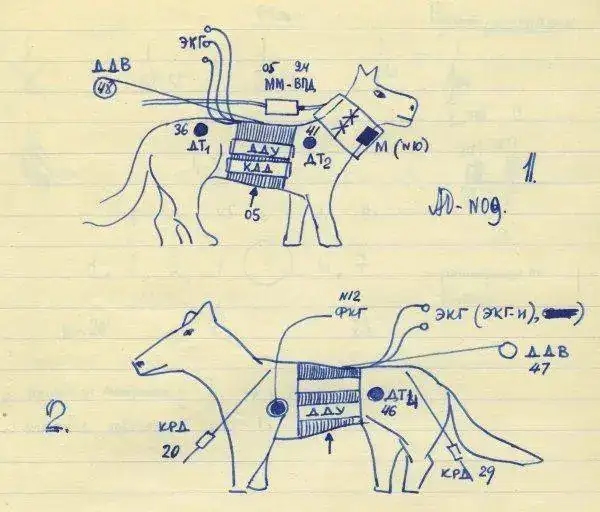 ЭКГ
ДДВ
48
05 94
ММ-ВПД
36
ДТ₁
41
ДТ₂
ДДУ
КДД
М (N10)
05
1.
N12
ФКГ
ЭКГ (ЭКГ-И),
ДДВ
47
ДДУ
ДТ
46
4
2.
КРД
20
КРД 29